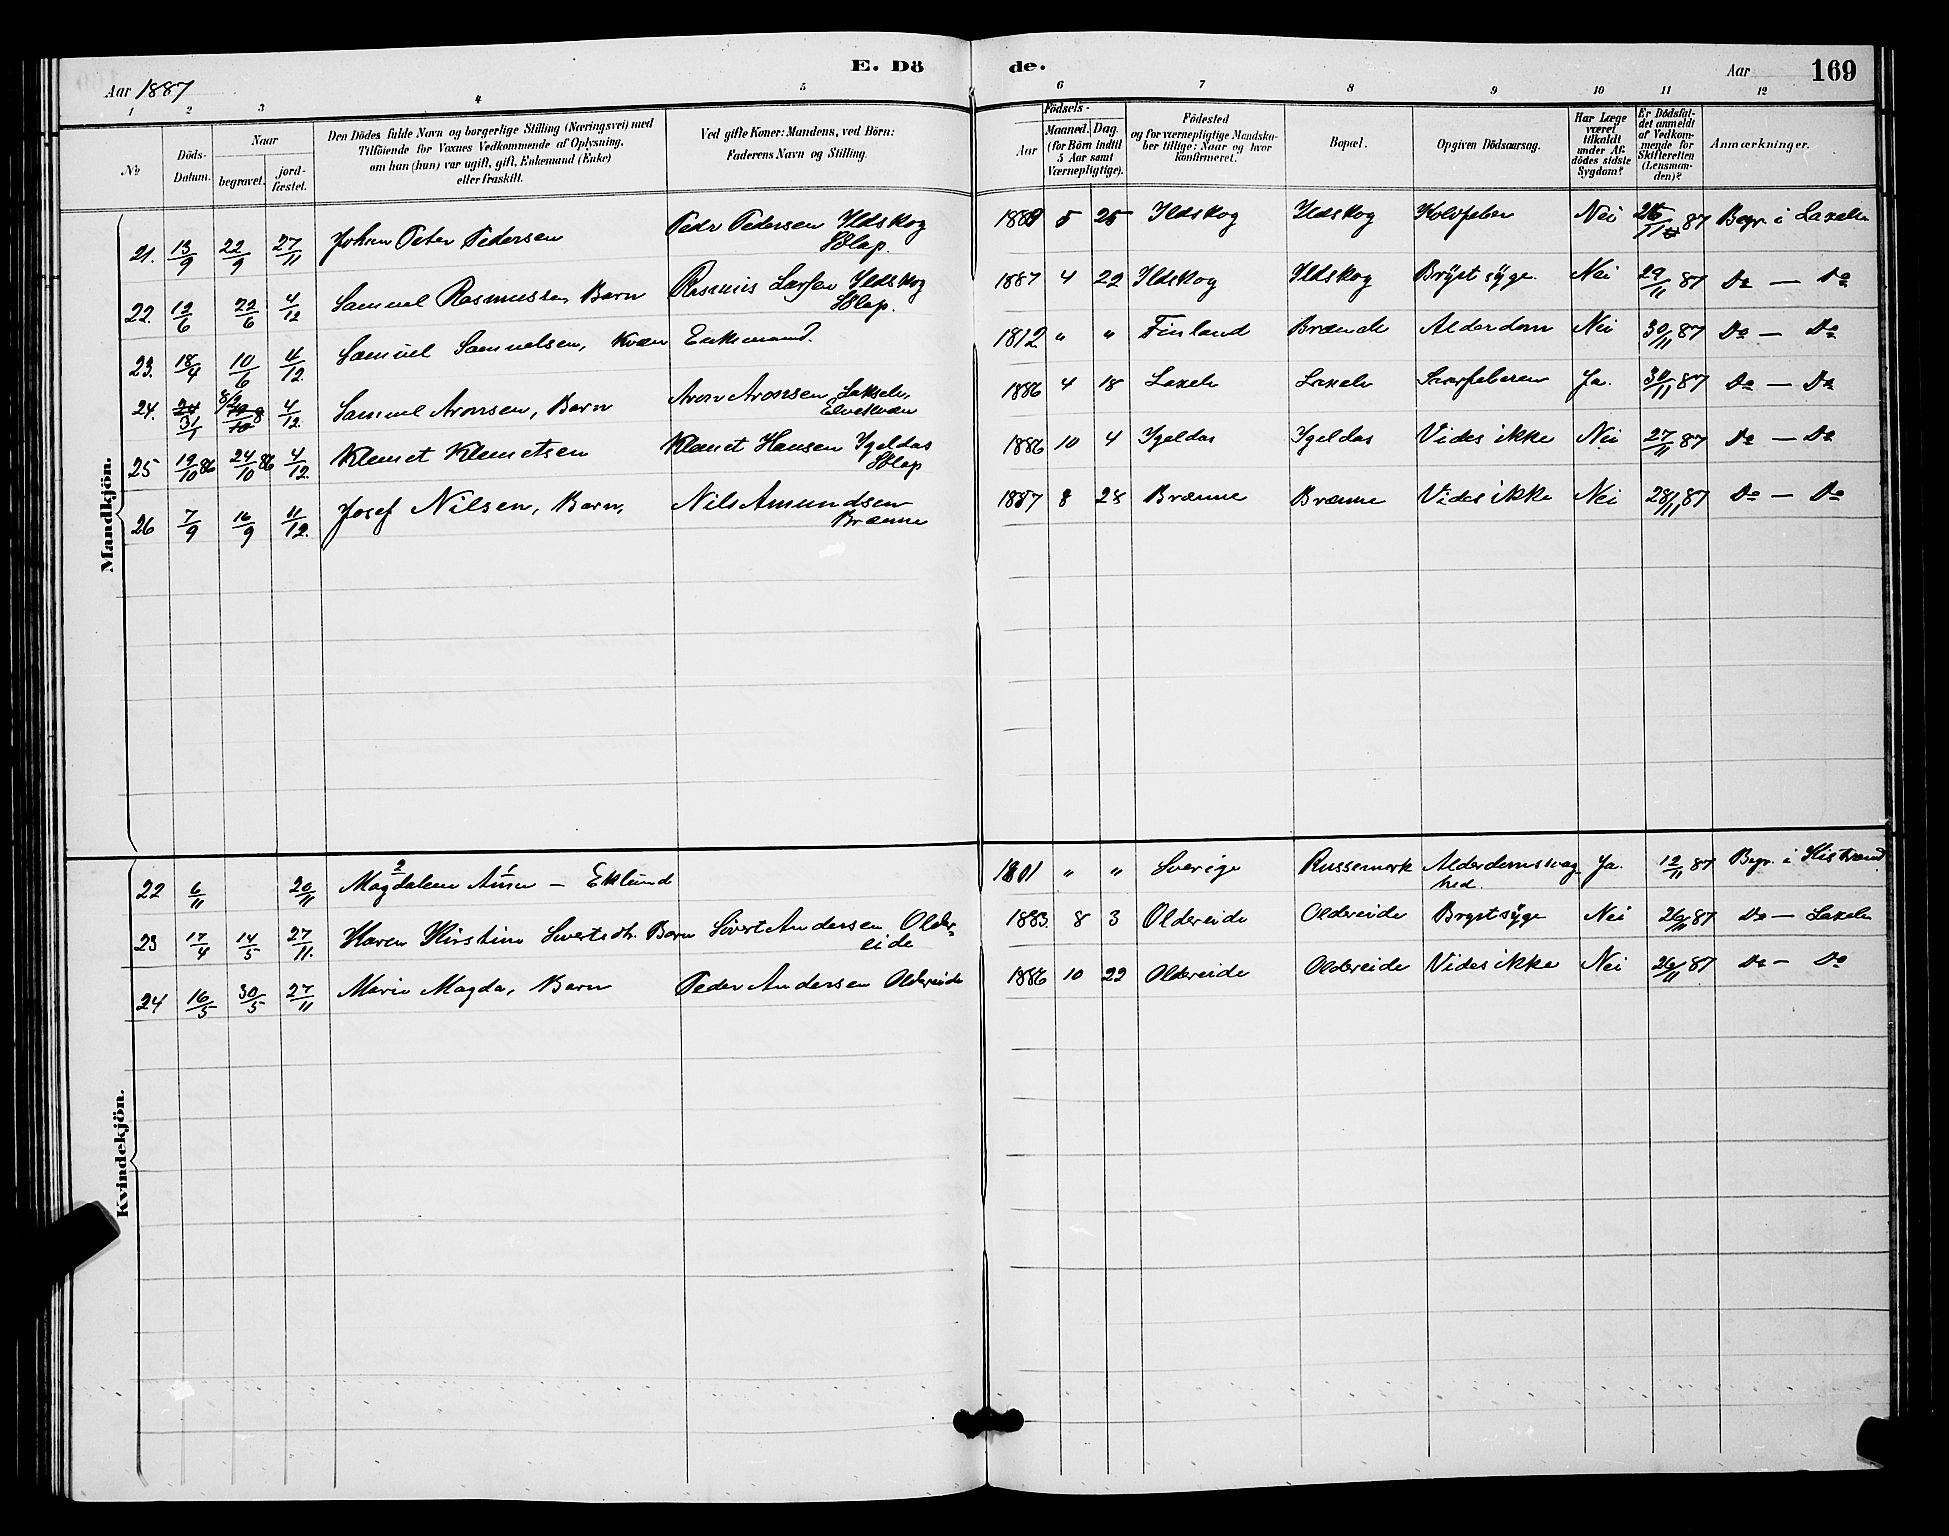 E. Dö de.
Aar 1887
Aar 169
1 2 3 4 5 6 7 8 9 10 11 12
No
Döds-Datum.
Naar
begravet.
jord-fæstet.
Den Dödes fulde Navn og borgerlige Stilling (Næringsvei) med
Tilföiende for Voxnes Vedkommende af Oplysning,
om han (hun) var ugift, gift, Enkemand (Enke)
eller fraskilt.
Ved gifte Koner: Mandens, ved Börn:
Faderens Navn og Stilling.
Födsels-
Aar
Maaned. Dag.
(for Börn indtil
5 Aar samt
Værnepligtige).
Födested
og for værnepligtige Mandska-
ber tillige: Naar og hvor
konfirmeret.
Bopæl.
Opgiven Dödsaarsag.
Har Læge
været
tilkaldt
under Af-
dödes sidste
Sygdom?
Er Dödsfal-
det anmeldt
af Vedkom-
mende for
Skifteretten
(Lensman-
den)?
Anmærkninger.
Mandkjön.
21. 13/9 22/9 27/11 Johan Peter Pedersen Peder Pedersen Ildskog 5 25 Ildskog Ildskog Nei 87 Begr. i Laxelv
22. 12/6 22/6 4/12 Samuel Rasmussen Barn Rasmus Larsen Ildskog 1887 4 22 Ildskog Ildskog Brystsyge Nei 29/11 87 Do — Do
23. 18/4 10/6 4/12 Samuel Samuelsen, Kvæn Enkemand. 1812 " " Finland Brænde Alderdom Nei 30/11 87 Do — Do
24. 31/1 8/2 4/12 Samuel Aronsen, Barn Aron Aronsen Lakselv, 1886 4 18 Laxelv Laxelv Ja. 30/11 87 Do — Do
Elvekvæn
25 19/10 86 24/10 86 4/12. Klemet Klemetsen Klemet Hansen Igeldas 1886 10 4 Igeldas Igeldas Vides ikke Nei 27/11 87 Do — Do
26 7/9 16/9 11/12. Josef Nilsen, Barn, Nils Amundsen 1887 8 28 Brænne Brænne Vides ikke Nei 28/11 87 Do — Do
Brænne
Kvindekjön.
22 6/11 20/11 Magdalena Anna — Eklund 1801 " " Sverige Russemark Alderdomssvag Ja. 12/11 87 Begr. i Kistrand
hed.
23 17/4 14/5 27/11. Karen Kirstine Sivertsdtr. Barn Sivert Andersen Older- 1883. 8 3 Oldereide Oldereide Brystsyge Nei 26/11 87 Do — Laxelv
eide
24 16/5 30/5 27/11 Marie Magda, Barn Peder Andersen Oldereide 1886 10 22 Oldereide Oldereide Vides ikke Nei 26/11 87 Do — Do